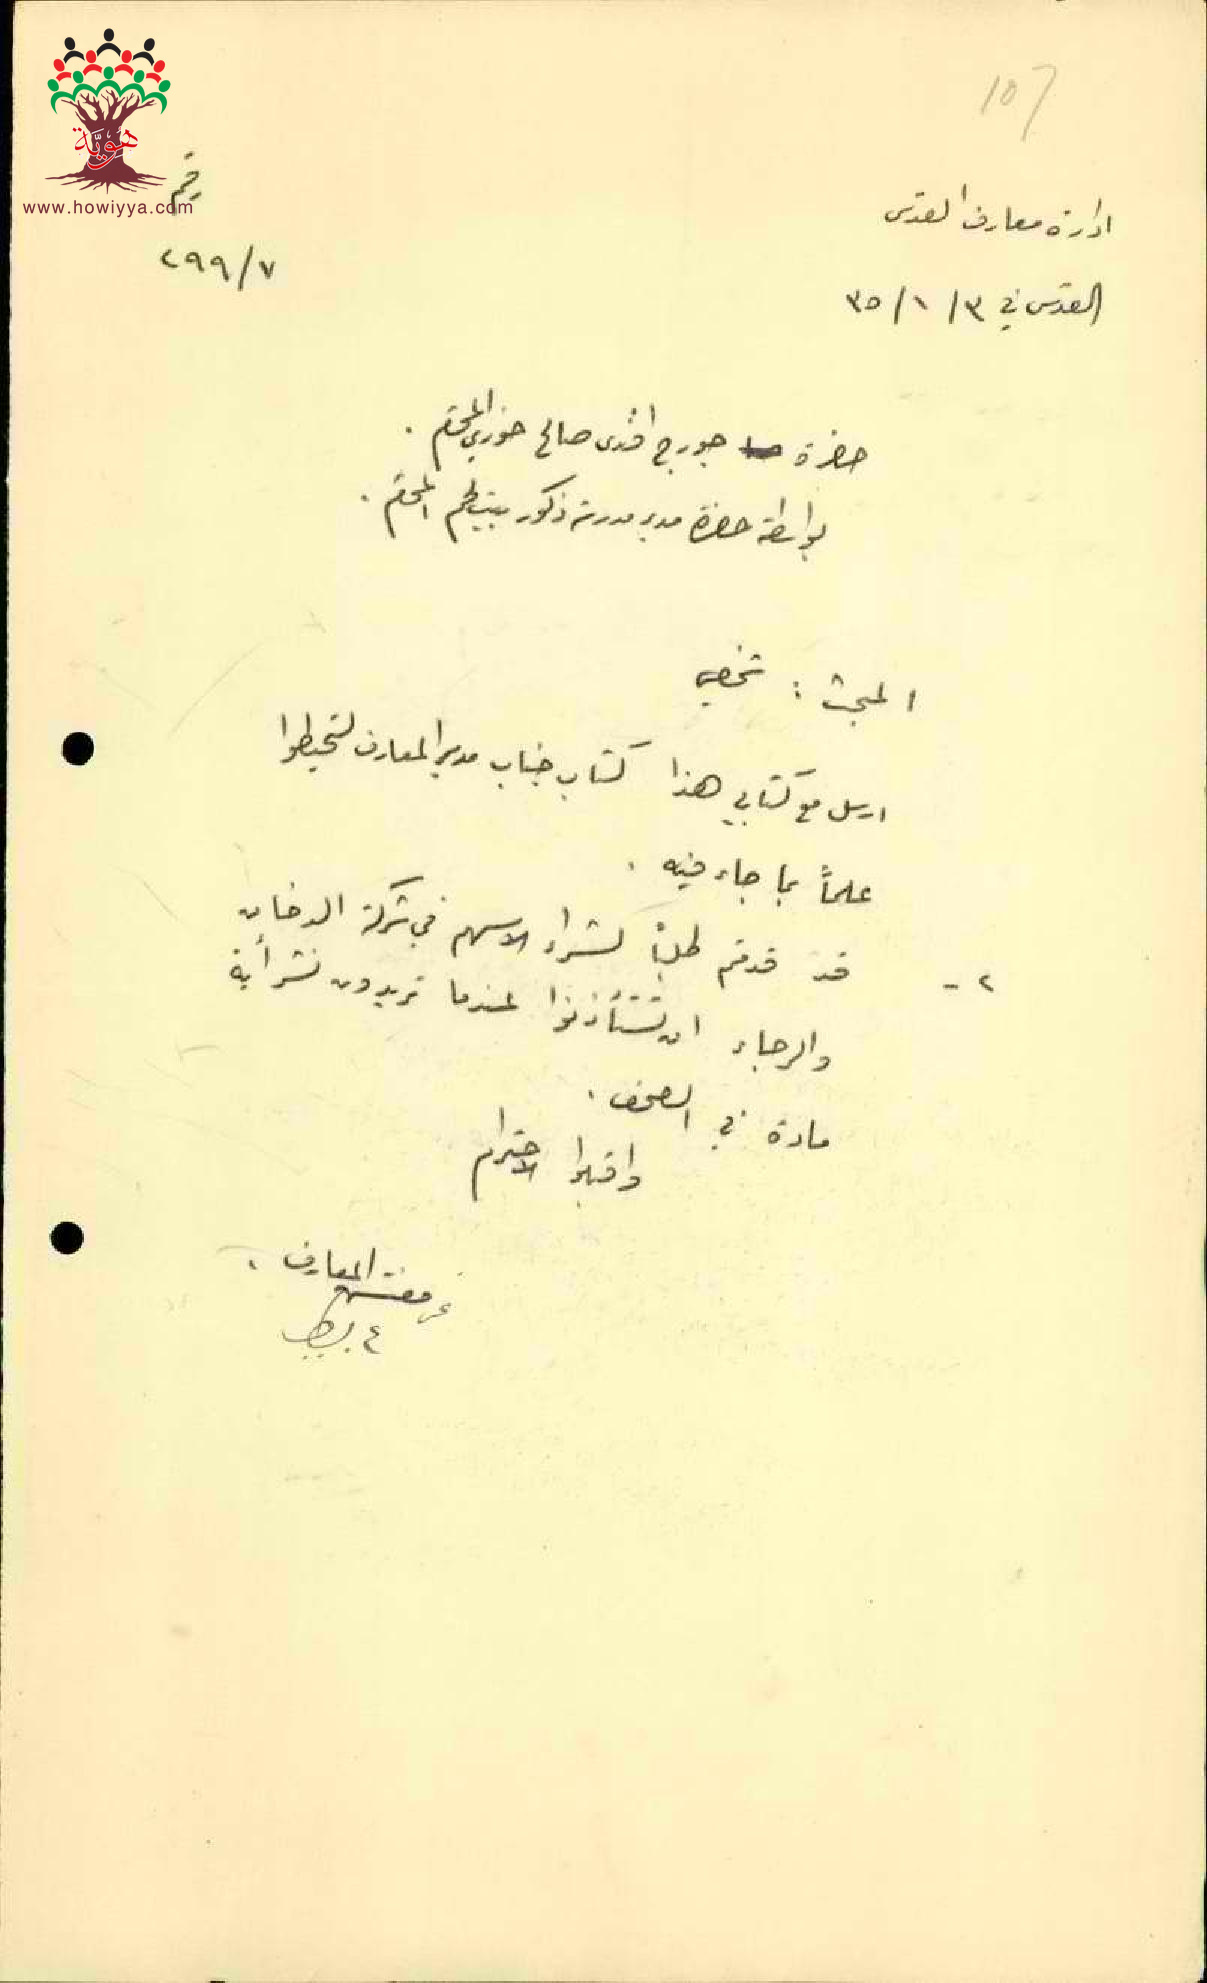 هوية
www.howiyya.com
107
ادارة معارف القدس
رقم
القدس في ٣/١/٣٥
٧/٢٩٩
حضرة جورج افندي صالح خوري المحترم .
بواسطة حضرة مدير مدرسة ذكور بيت لحم المحترم .
المبحث : شخصي
ارسل مع كتابي هذا كتاب جناب مدير المعارف لتحيطوا
علماً بما جاء فيه .
٢ - قد قدمتم طلباً لشراء الاسهم في شركة الدخان
والرجاء ان تستأذنوا عندما تريدون نشر أية
مادة في الصحف .
واقبلوا الاحترام
عن مفتش المعارف .